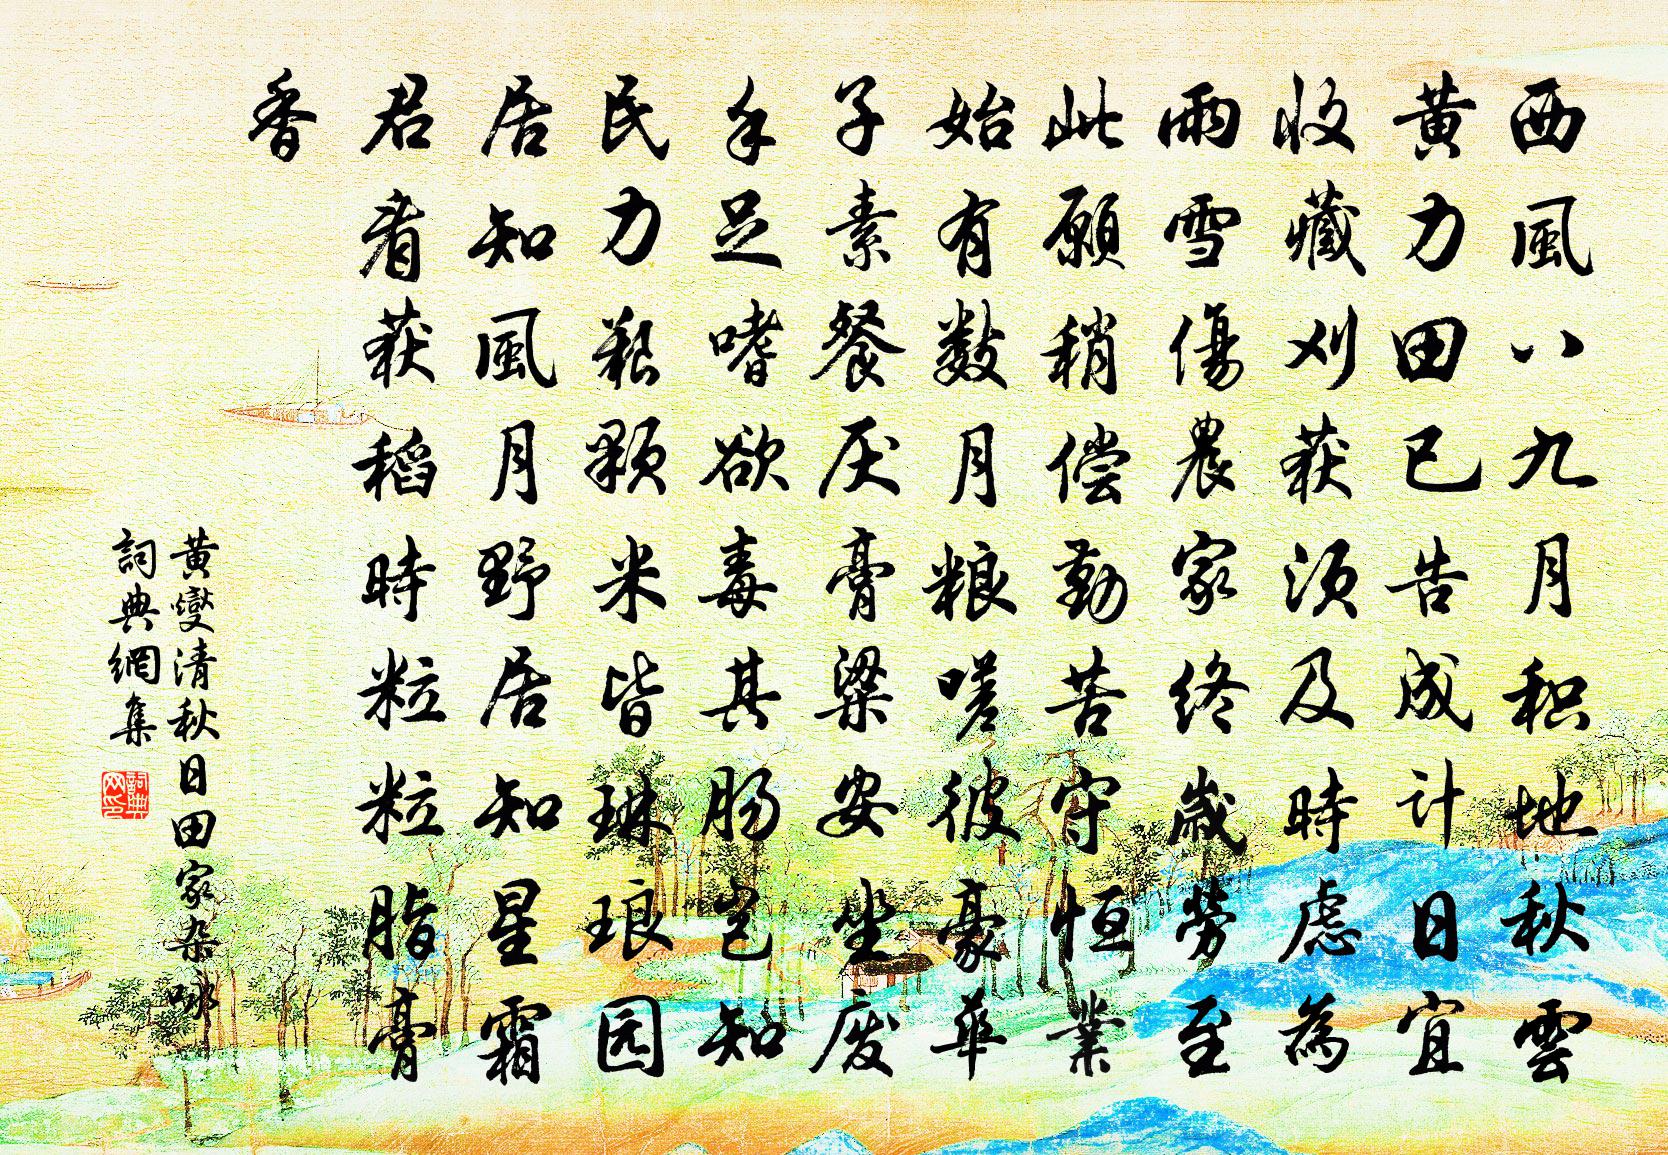 西風八九月积地秋雲
黄力田已告成计日宜
收藏刈获须及時慮為
雨雪傷農家终歲勞至
此願稍偿勤苦守恒業
始有数月粮嗟彼豪華
子素餐厌膏粱安坐废
手足嗜欲毒其肠岂知
民力艰颗米皆琳琅园
居知風月野居知星霜
君看获稻時粒粒脂膏
香
黄燮清秋日田家杂咏
詞典網集
詞典网印